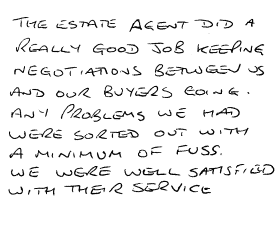 THE ESTATE AGENT DID A
REALLY GOOD JOB KEEPING
NEGOTIATIONS BETWEEN US
AND OUR BUYERS GOING.
ANY PROBLEMS WE HAD
WERE SORTED OUT WITH
A MINIMUM OF FUSS.
WE WERE WELL SATISFIED
WITH THEIR SERVICE